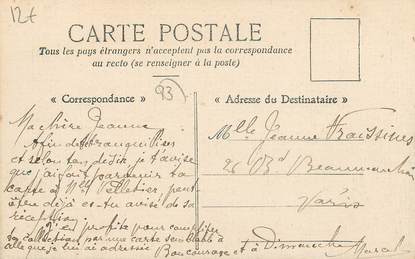 12t
CARTE POSTALE
Tous les pays étrangers n'acceptent pas la correspondance
au recto (se renseigner à la poste)
« Correspondance »
93
« Adresse du Destinataire »
Ma chère Jeanne
Afin de te tranquilliser
et selon ton désir, je t'avise
que j'ai fait parvenir ta
carte à Mlle Pelletier, peut-
être déjà es-tu avisé de sa
réception.
J'en profite pour compléter
ta collection par une carte semblable à
celle que je lui ai adressée
Bon courage et à Dimanche
Marcel
Mlle Jeanne Fraissines
26 Bd Beaumarchais
Paris